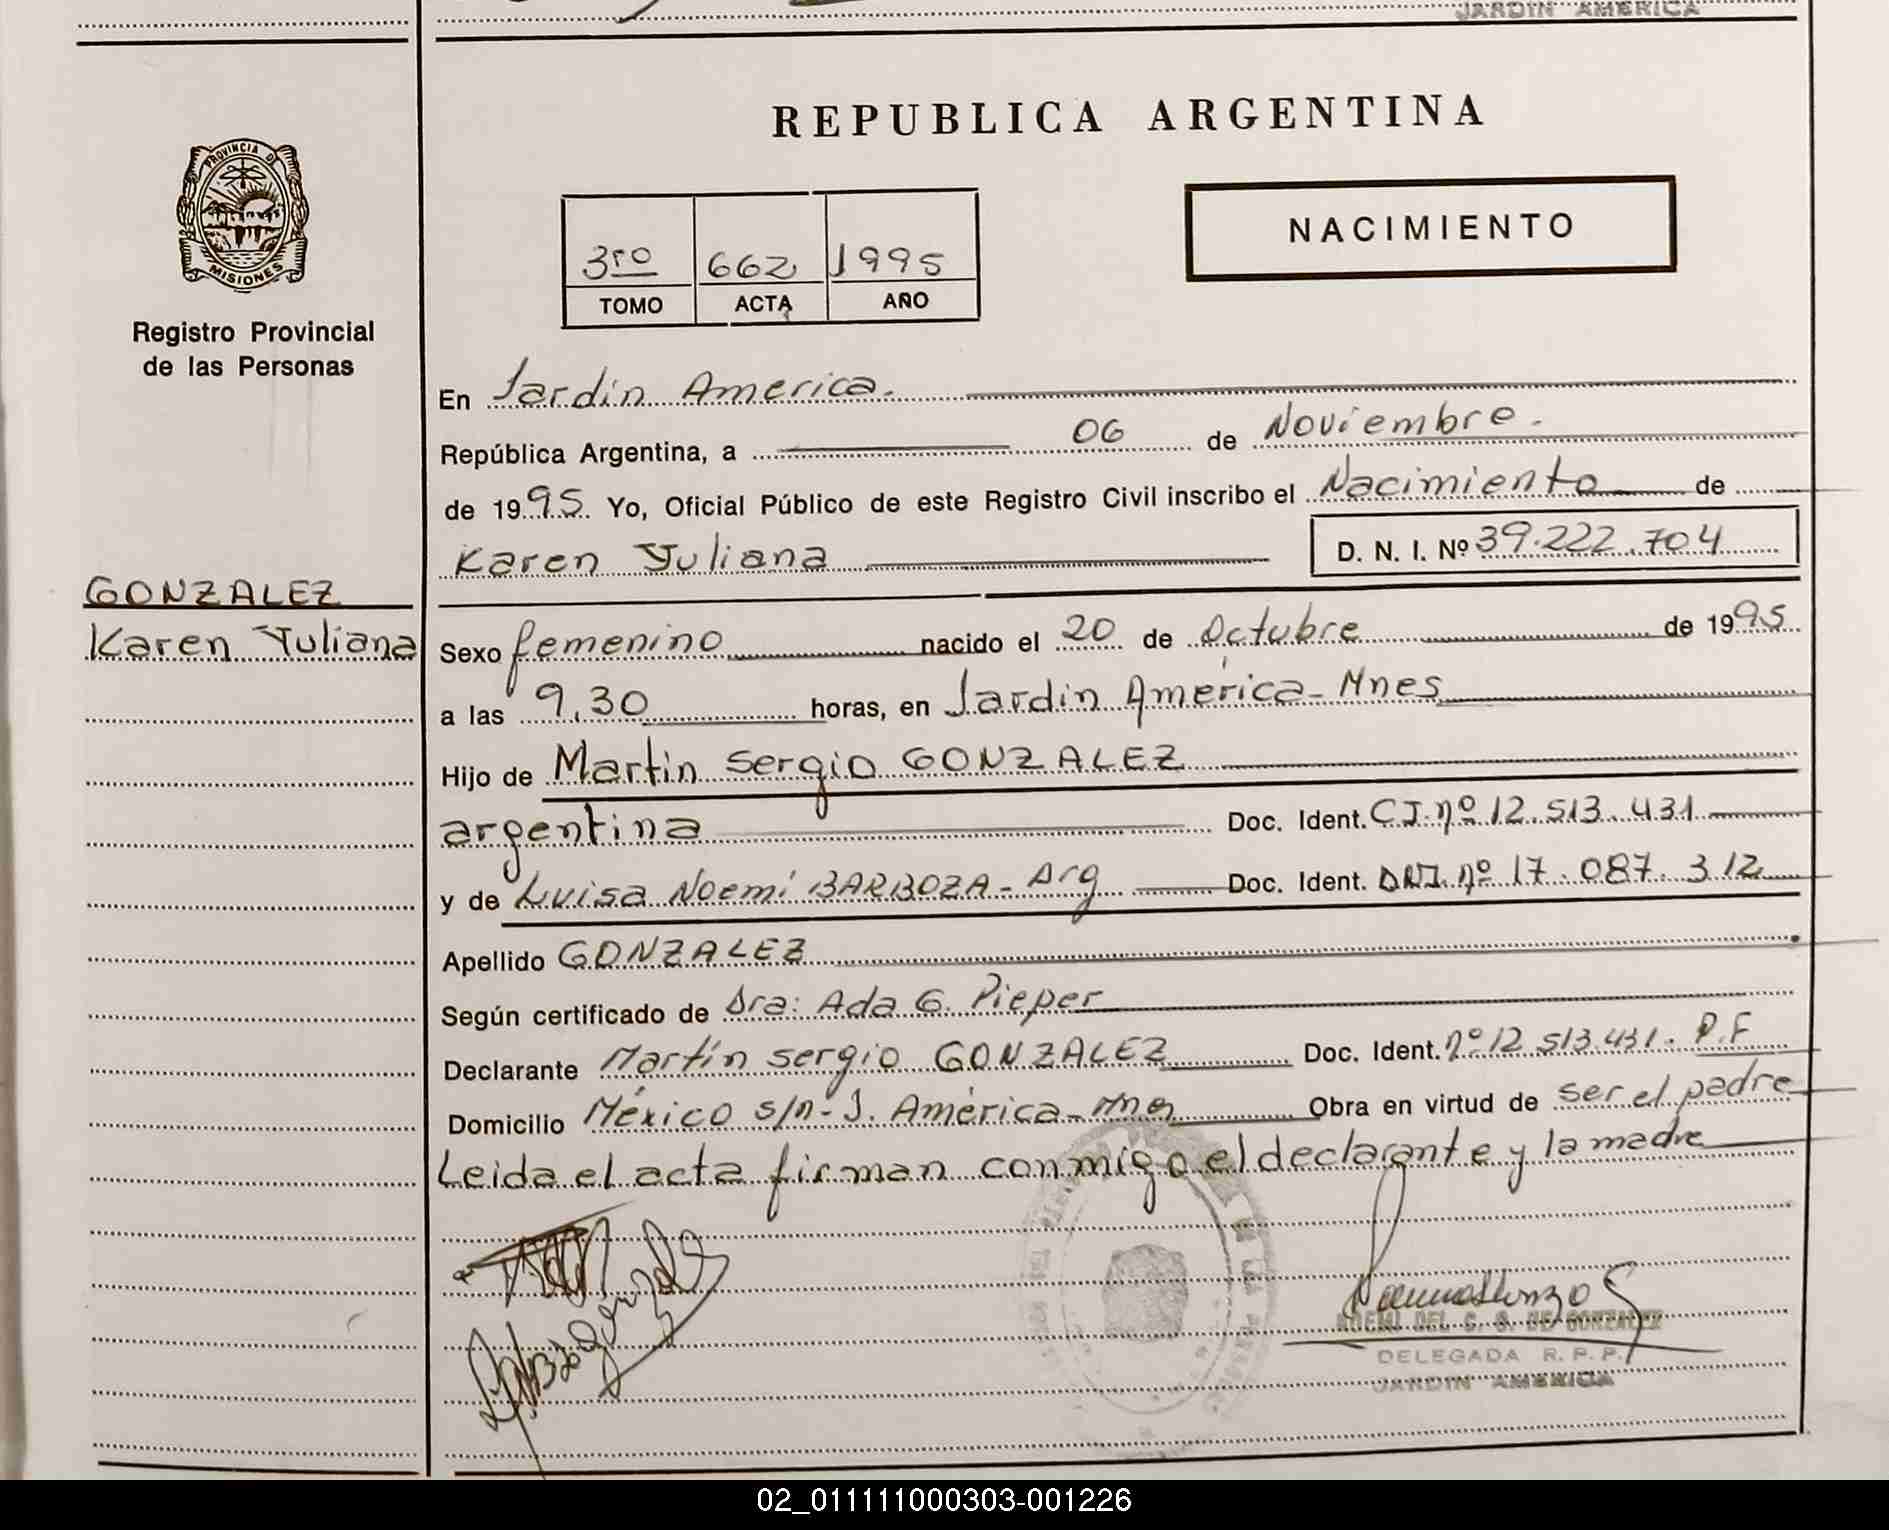 JARDIN AMERICA
REPUBLICA ARGENTINA
PROVINCIA DE
MISIONES
NACIMIENTO
3ro 662 1995
TOMO ACTA AÑO
Registro Provincial
de las Personas
En Jardin America.
República Argentina, a 06 de Noviembre.
de 1995. Yo, Oficial Público de este Registro Civil inscribo el Nacimiento de
Karen Yuliana D. N. I. Nº 39.222.704
GONZALEZ
Karen Yuliana
Sexo femenino nacido el 20 de Octubre de 1995
a las 9,30 horas, en Jardin América-Mnes
Hijo de Martin Sergio GONZALEZ
argentina Doc. Ident. CI.nº 12.513.431
y de Luisa Noemi BARBOZA-Arg Doc. Ident. DNI.nº 17.087.312
Apellido GONZALEZ
Según certificado de Dra: Ada G. Pieper
Declarante Martín Sergio GONZALEZ Doc. Ident. nº 12.513.431. P.F
Domicilio México s/n-J. América-Mnes Obra en virtud de ser el padre
Leida el acta firman conmigo el declarante y la madre
NOEMI DEL C. S. DE GONZALEZ
DELEGADA R. P. P.
JARDIN AMERICA
02_011111000303-001226